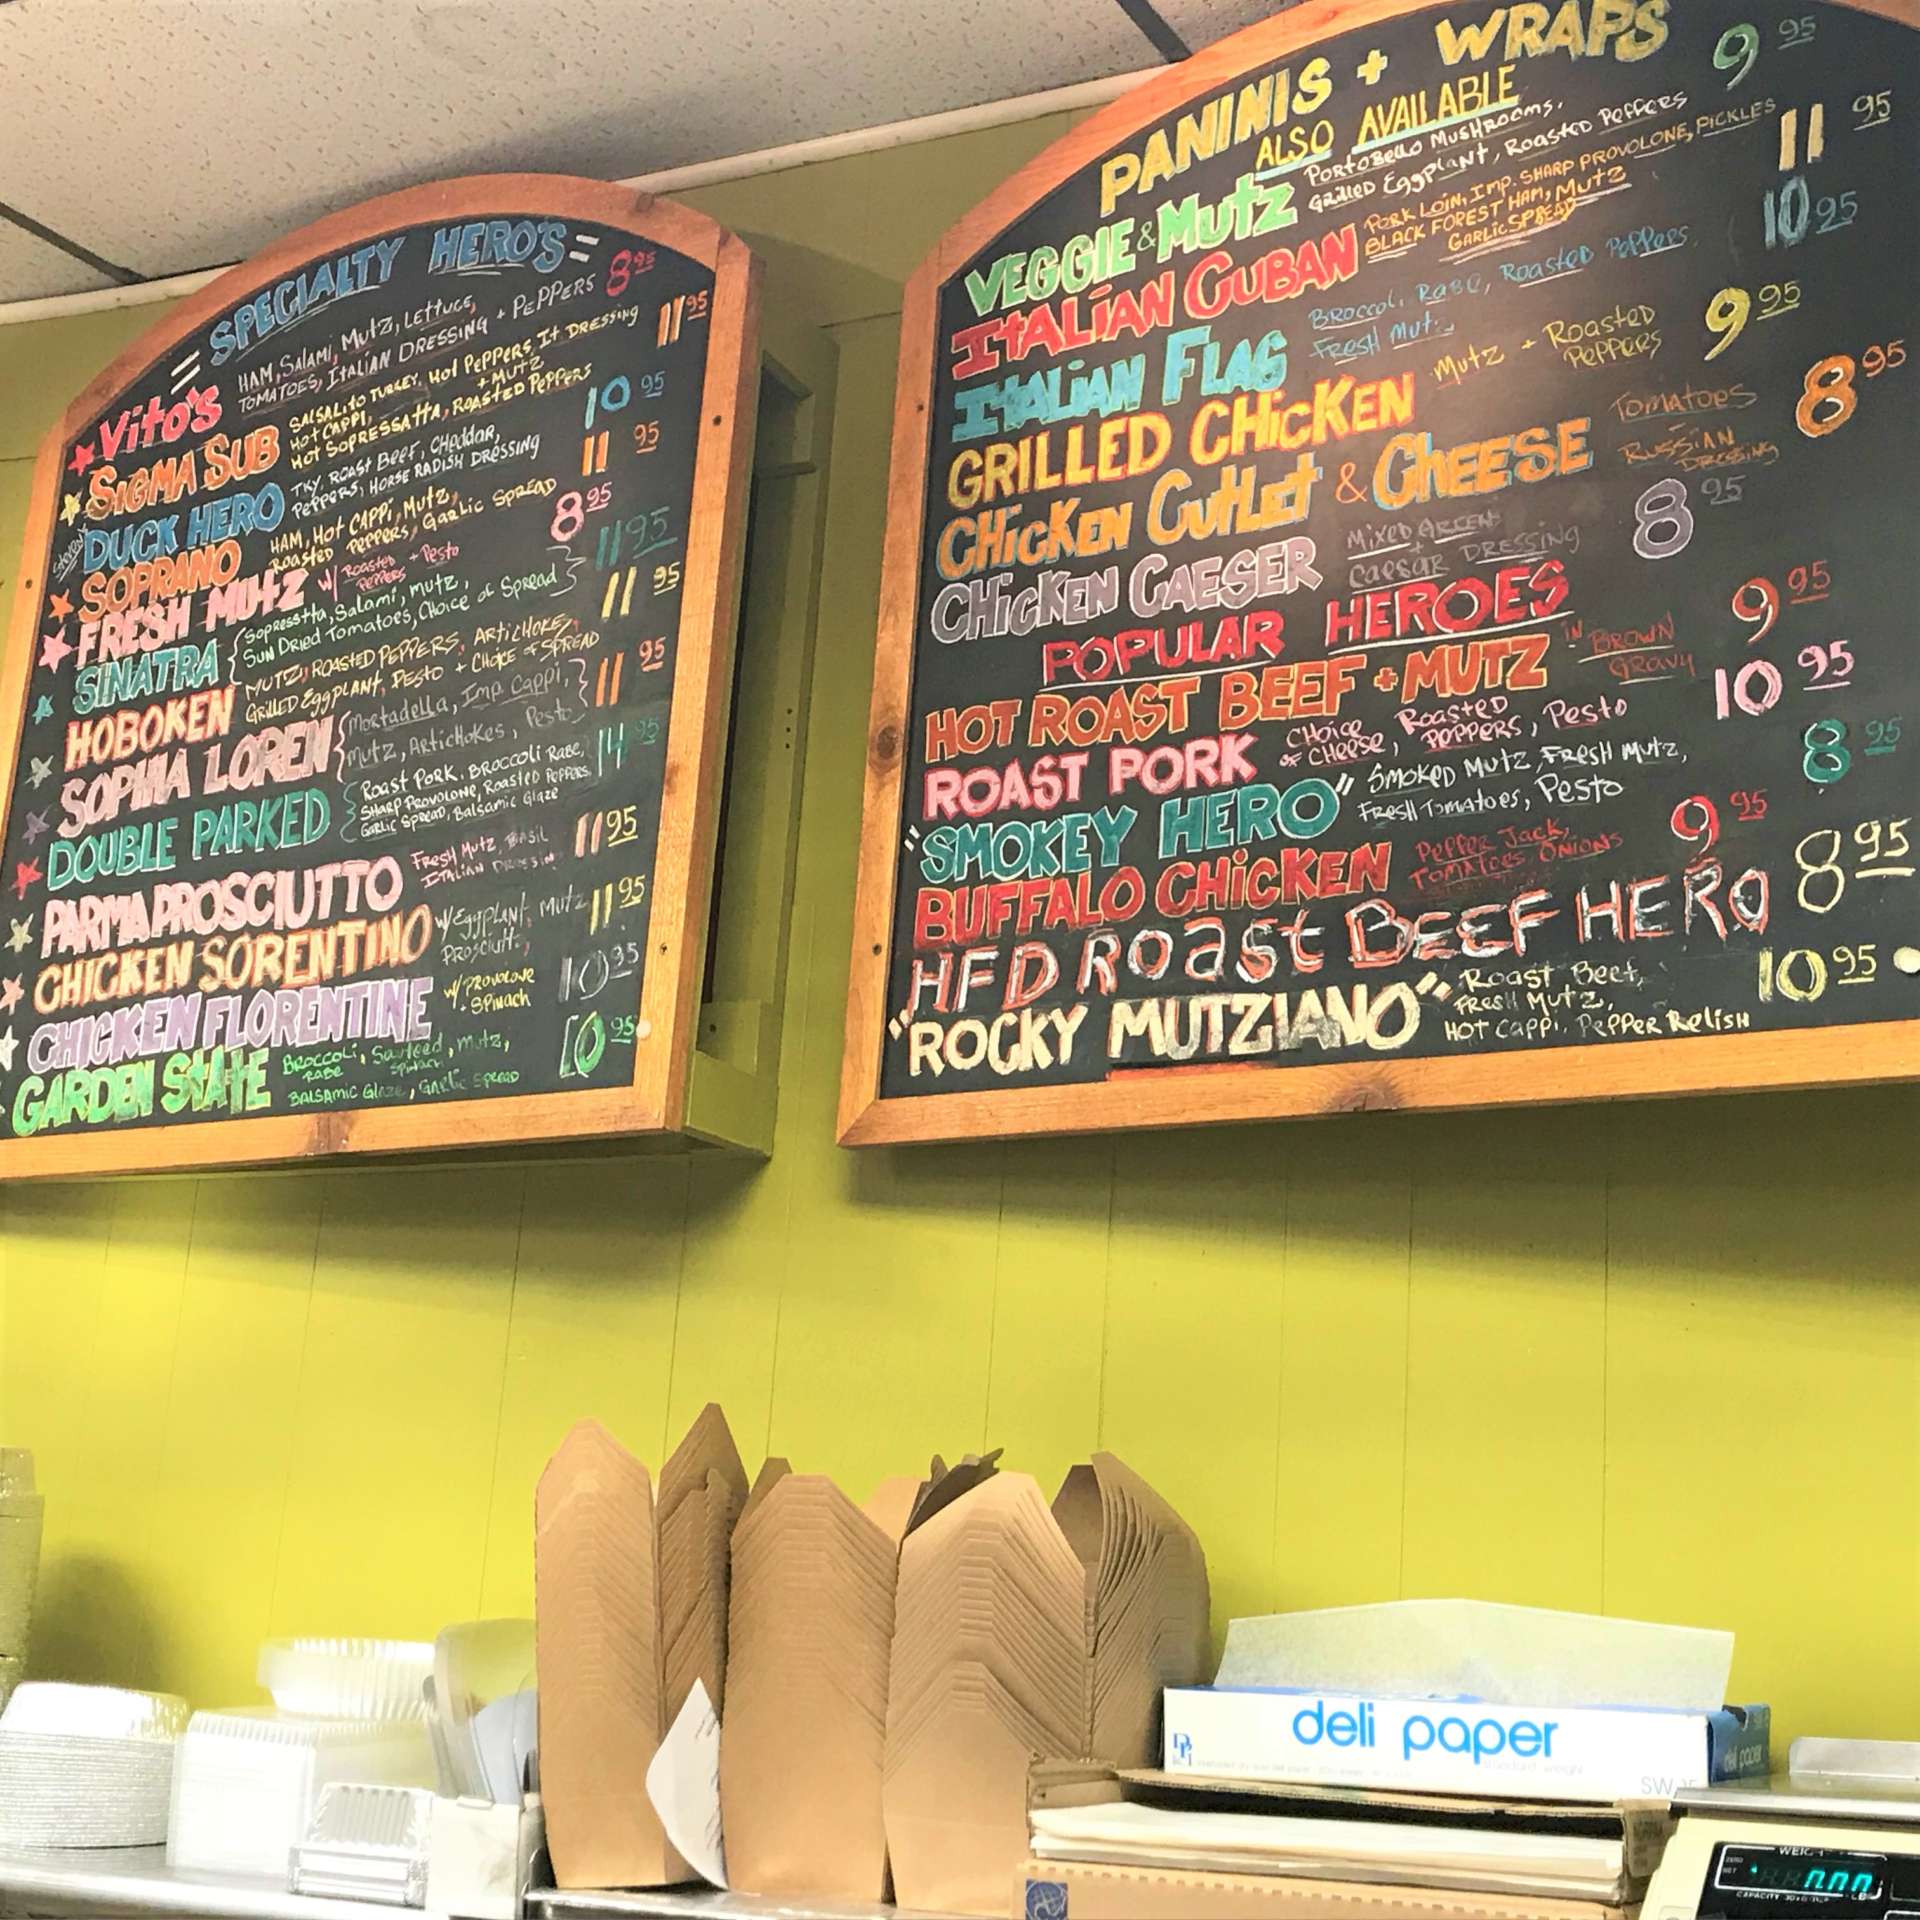 = SPECIALTY HERO'S =
Vito's HAM, Salami, Mutz, Lettuce, 8 95
TOMATOES, ITALIAN DRESSING + PEPPERS
SIGMA SUB SALSALITO TURKEY, HOT PEPPERS, It DRESSING 11 95
HOT CAPPI, + MUTZ
HOT SOPRESSATTA, ROASTED PEPPERS
DUCK HERO TKY, ROAST BEEF, CHEDDAR, 10 95
PEPPERS, HORSE RADISH DRESSING
SOPRANO HAM, HOT CAPPI, MUTZ, 11 95
ROASTED PEPPERS, GARLIC SPREAD
FRESH MUTZ W/ ROASTED PEPPERS + Pesto 8 95
SINATRA { Sopresstta, Salami, mutz, } 11 95
SUN DRIED Tomatoes, Choice of Spread
HOBOKEN MUTZ, ROASTED PEPPERS, ARTICHOKE, 11 95
GRILLED EGGPLANT, PESTO + CHOICE of SPREAD
SOPHIA LOREN { Mortadella, Imp. Cappi, } 11 95
Mutz, Artichokes, Pesto
DOUBLE PARKED { Roast Pork, Broccoli Rabe, 14 95
SHARP PROVOLONE, ROASTED PEPPERS,
GARLIC SPREAD, Balsamic Glaze
PARMA PROSCIUTTO FRESH MUTZ, BASIL 11 95
ITALIAN DRESSING
CHICKEN SORENTINO W/ Eggplant, Mutz 11 95
CHICKEN FLORENTINE W/ PROVOLONE 10 95
+ SPINACH
GARDEN STATE BROCCOLI RABE, Sauteed Spinach, Mutz, 10 95
BALSAMIC Glaze, Garlic SPREAD
PANINIS + WRAPS
ALSO AVAILABLE
VEGGIE & MUTZ PORTOBELLO MUSHROOMS, 9 95
GRILLED EGGPLANT, ROASTED PEPPERS
ITALIAN CUBAN PORK LOIN, IMP. SHARP PROVOLONE, PICKLES 11 95
BLACK FOREST HAM, MUTZ
GARLIC SPREAD
ITALIAN FLAG BROCCOLI RABE, ROASTED PEPPERS 10 95
FRESH Mutz
GRILLED CHICKEN MUTZ + ROASTED 9 95
PEPPERS
CHICKEN CUTLET & CHEESE TOMATOES 8 95
RUSSIAN
DRESSING
CHICKEN CAESER MIXED GREENS 8 95
+
CAESAR DRESSING
POPULAR HEROES
HOT ROAST BEEF + MUTZ IN BROWN 9 95
GRAVY
ROAST PORK CHOICE OF CHEESE, ROASTED PEPPERS, Pesto 10 95
"SMOKEY HERO" SMOKED MUTZ, FRESH MUTZ, 8 95
FRESH TOMATOES, Pesto
BUFFALO CHICKEN PEPPER JACK, 9 95
TOMATOES, ONIONS
HFD ROAST BEEF HERO 8 95
"ROCKY MUTZIANO" ROAST BEEF, 10 95
FRESH MUTZ,
HOT CAPPI, PEPPER RELISH
deli paper
deli paper